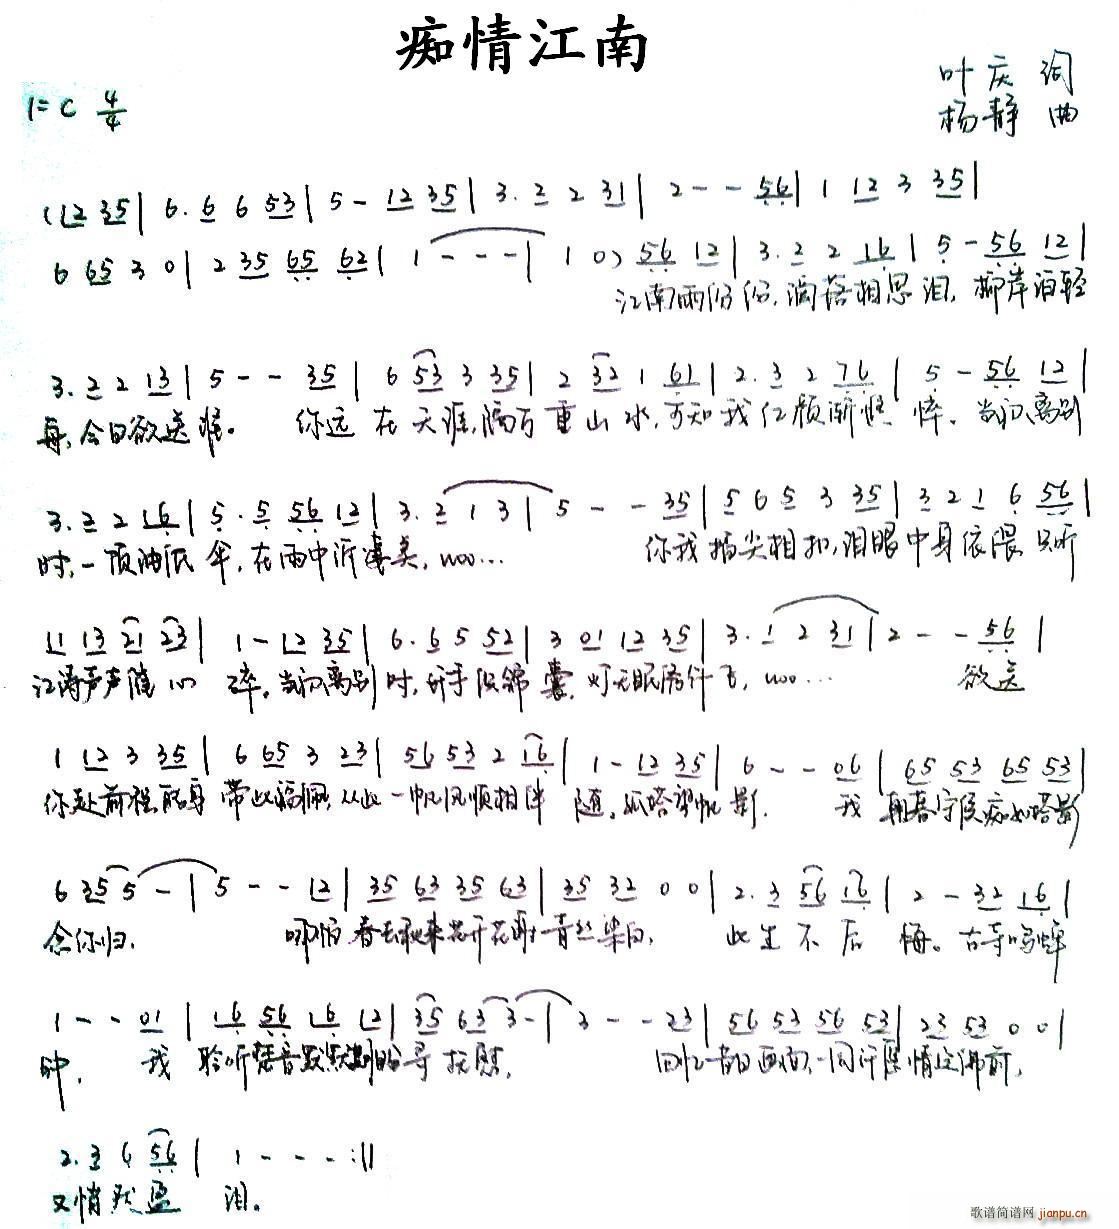 痴情江南
叶庆 词
1=C 4/4
杨静 曲
(12 35| 6. 6 6 53| 5 - 12 35| 3. 2 2 31| 2 - - 56| 1 12 3 35|
6 65 3 0| 2 35 65 62| 1 - - -| 1 0) 56 12| 3. 2 2 16| 5 - 56 12|
江南雨纷纷,滴落相思泪,柳岸泊轻
3. 2 2 13| 5 - - 35| 6 53 3 35| 2 32 1 61| 2. 3 2 76| 5 - 56 12|
每,今日欲送谁。 你远在天涯,隔万重山水,可知我红颜渐憔悴。当初离别
3. 2 2 16| 5. 5 56 12| 3. 2 1 3| 5 - - 35| 5 6 5 3 35| 3 2 1 6 56|
时,一顶油纸伞,在雨中诉凄美,woo... 你我指尖相扣,泪眼中身依偎 只听
11 13 21 23| 1 - 12 35| 6. 6 5 52| 3 01 12 35| 3. 1 2 31| 2 - - 56|
江涛声声随心碎。当初离别时,锦囊, woo... 欲送
1 12 3 35| 6 65 3 23| 56 53 2 16| 1 - 12 35| 6 - - 06| 65 53 65 53|
你赴前程 带此福佩,从此一帆风顺相伴随。孤塔望帆影. 我 朝暮守侯痴如塔影
6 35 5 -| 5 - - 12| 35 63 35 63| 35 32 0 0| 2. 3 56 16| 2 - 32 16|
念你归. 哪怕春去秋来花开花谢青丝染白, 此生不后悔。古寺鸣蝉
1 - - 01| 16 56 16 12| 35 63 3 -| 3 - - 23| 56 53 56 53| 23 53 0 0|
钟, 我 聆听梵音默默 寻抚慰, 回忆昔日画面,一同许愿情定佛前,
2. 3 6 56| 1 - - - :||
又悄然盈 泪。
歌谱简谱网 jianpu.cn